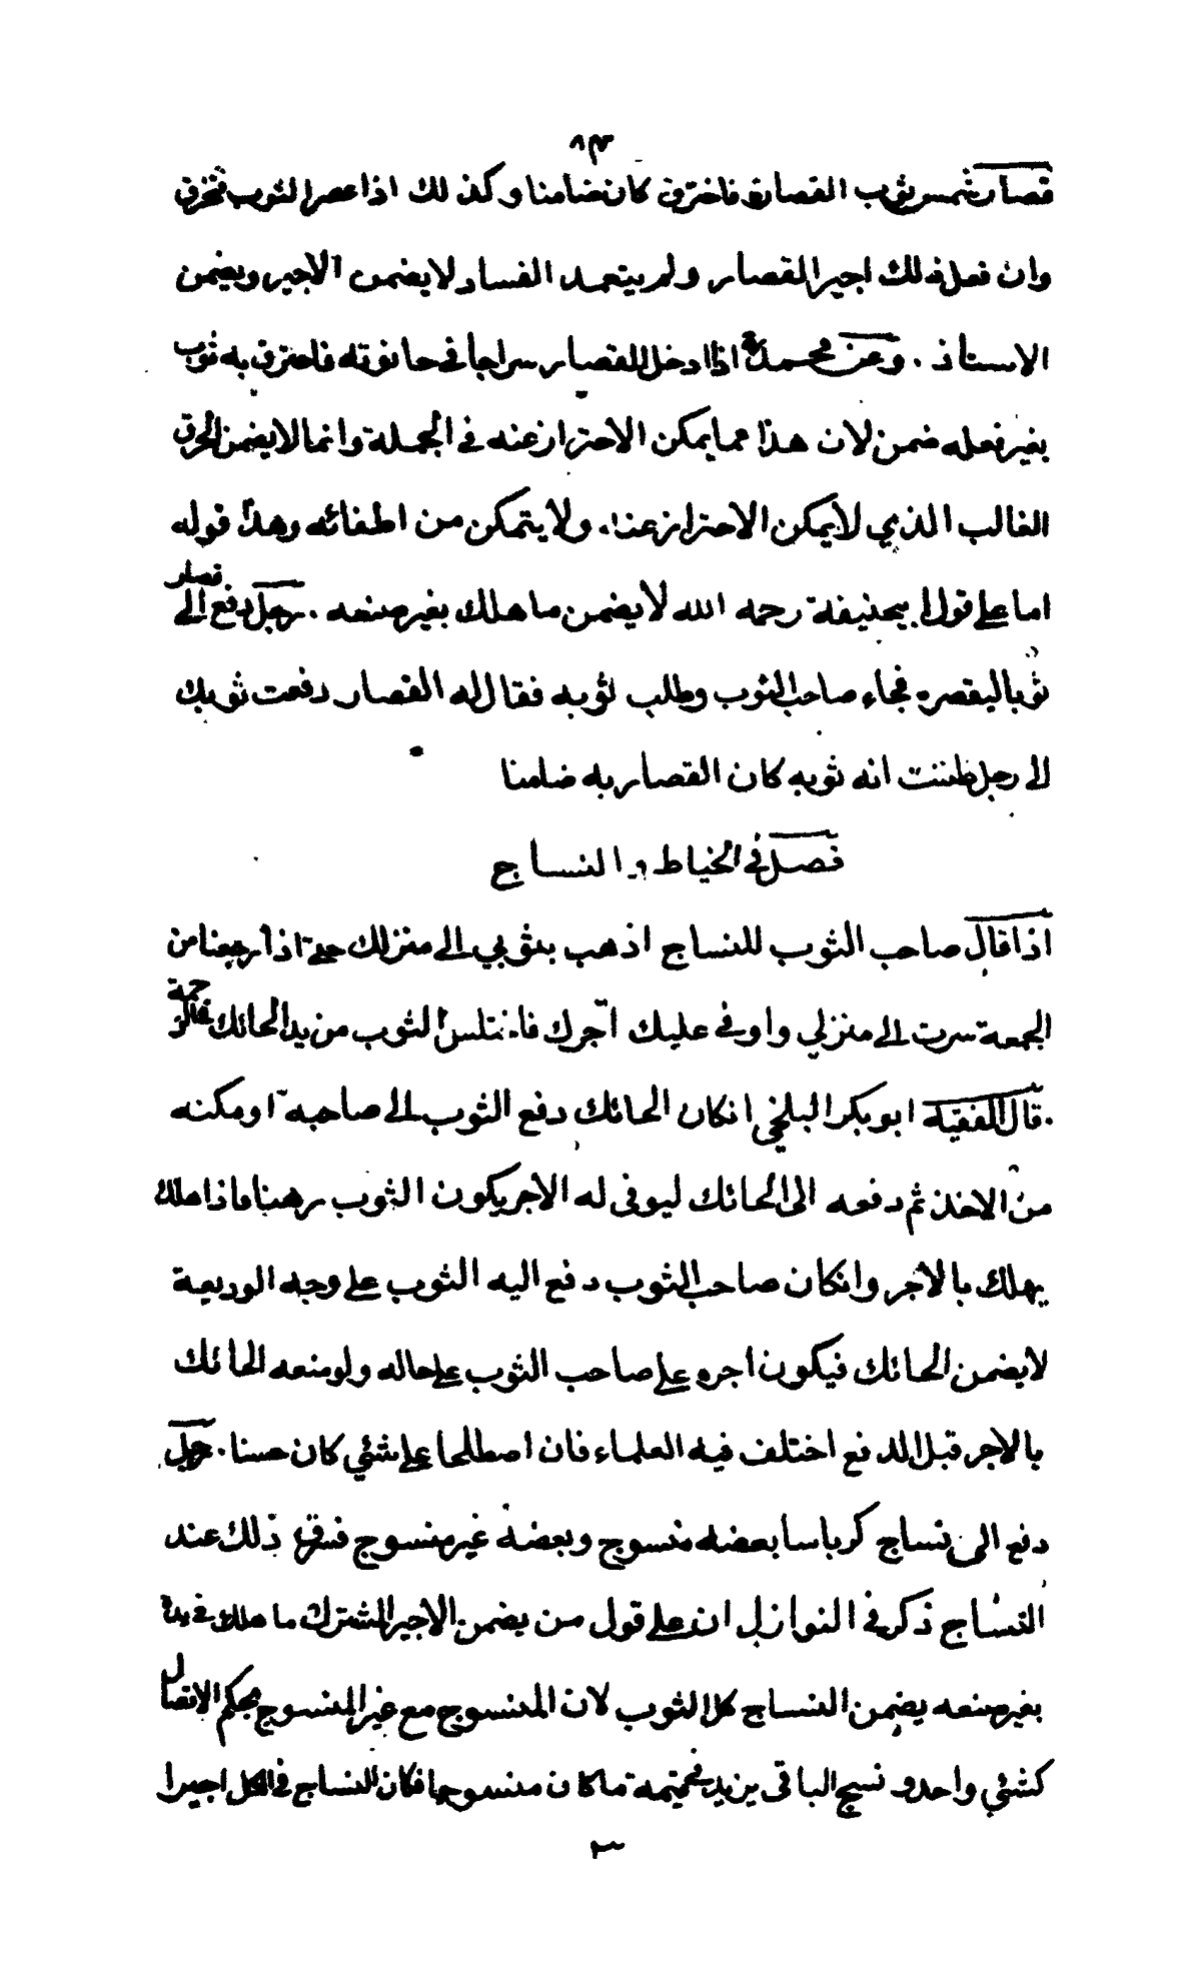 ٨٣
قصار شمس ثوب القصارة فاخترق كان ضامنا وكذلك اذا عصر الثوب فتخرق
وان فعل ذلك اجير القصار ولم يتعمد الفساد لا يضمن الاجير ويضمن
الاستاذ . وعن محمد اذا ادخل القصار سراجا في حانوته فاحترق به ثوب
بغير فعله ضمن لان هذا مما يمكن الاحتراز عنه في الجملة وانما لا يضمن الحرق
الغالب الذي لا يمكن الاحتراز عنه ولا يتمكن من اطفائه وهذا قوله
اما على قول ابيحنيفة رحمه الله لا يضمن ما هلك بغير صنعه . رجل دفع الى قصار
ثوبا ليقصره فجاء صاحب الثوب وطلب ثوبه فقال له القصار دفعت ثوبك
الى رجل ظننت انه ثوبه كان القصار به ضامنا
فصل في الخياط والنساج
اذا قال صاحب الثوب للنساج اذهب بثوبي الى منزلك حتى اذا رجعنا من
الجمعة سرت الى منزلي واوفي عليك اجرك فاختلس الثوب من يد الحائك في الزحمة
قال الفقيه ابو بكر البلخي انكان الحائك دفع الثوب الى صاحبه او مكنه
من الاخذ ثم دفعه الى الحائك ليوفى له الاجر يكون الثوب رهنا فاذا هلك
يهلك بالاجر وانكان صاحب الثوب دفع اليه الثوب على وجه الوديعة
لا يضمن الحائك فيكون اجره على صاحب الثوب على حاله ولو منعه الحائك
بالاجر قبل الدفع اختلف فيه العلماء فان اصطلحا على شئي كان حسنا . رجل
دفع الى نساج كرباسا بعضه منسوج وبعضه غير منسوج فسرق ذلك عند
النساج ذكر في النوازل ان على قول من يضمن الاجير المشترك ما هلك في يده
بغير صنعه يضمن النساج كل الثوب لان المنسوج مع غير المنسوج بحكم الاتصال
كشئي واحد و نسج الباقى يزيد في قيمة ما كان منسوجا فكان النساج في الكل اجيرا